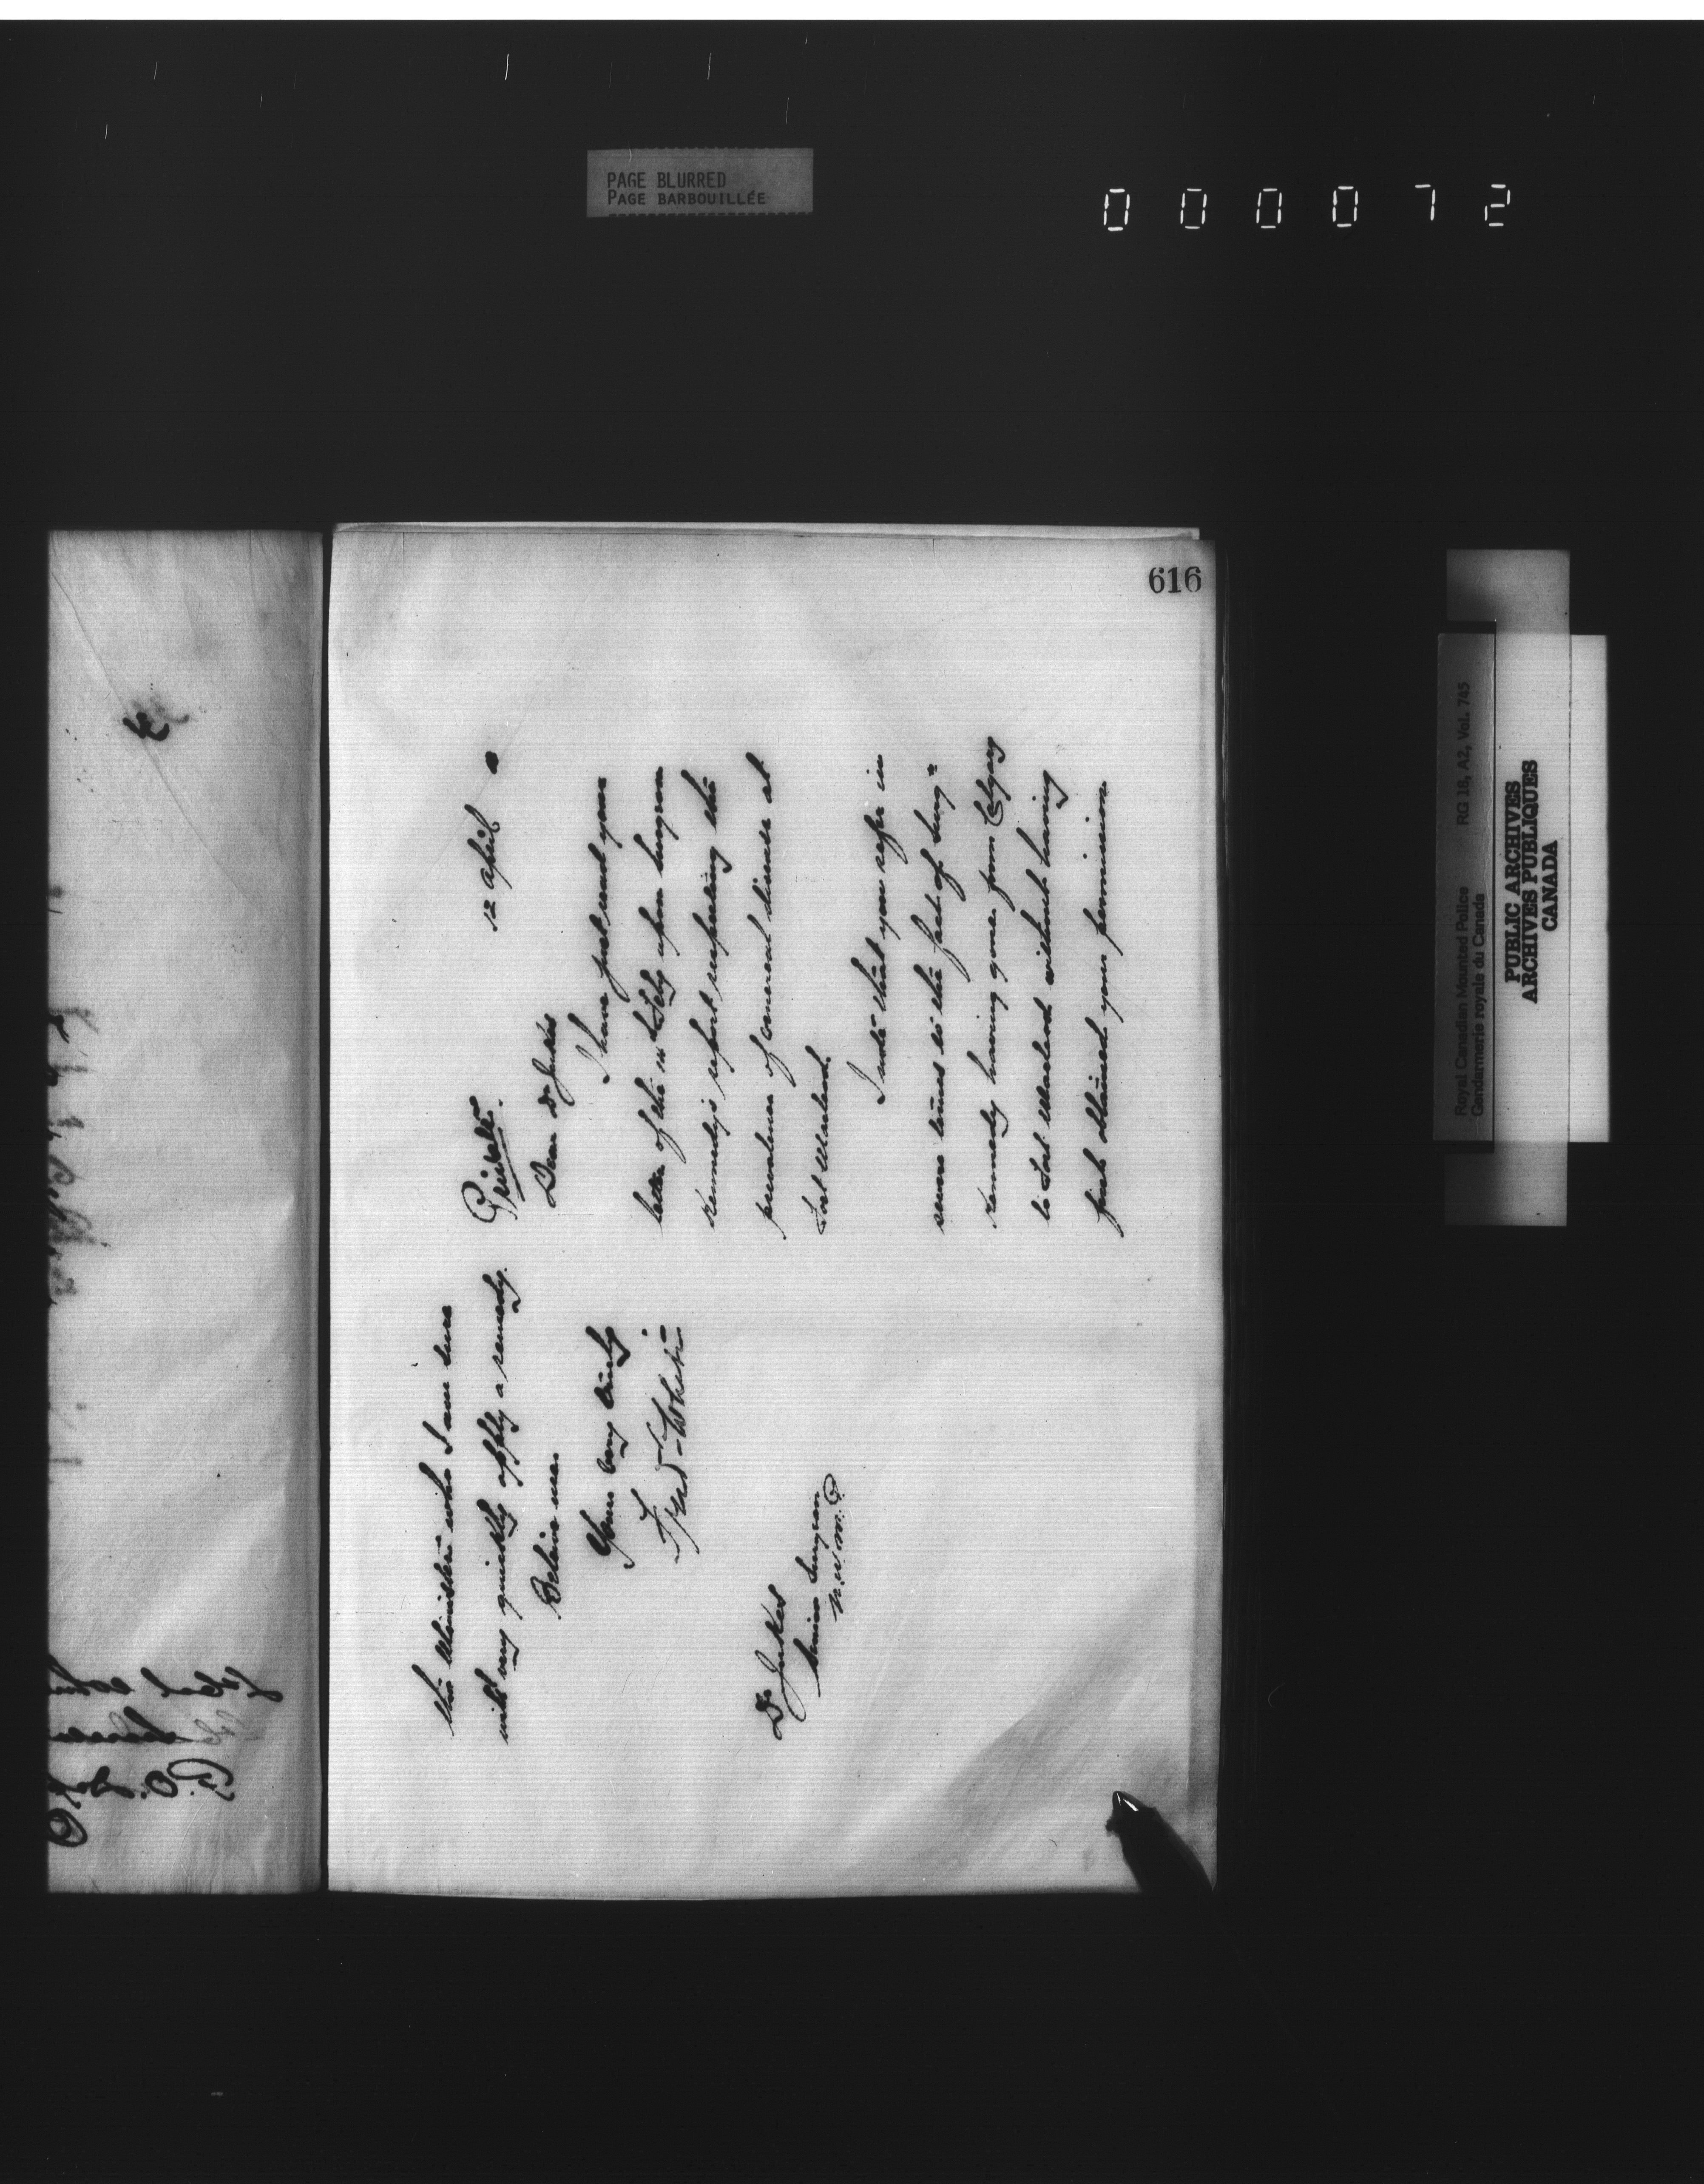 PAGE BLURRED
PAGE BARBOUILLÉE
000072
616
the Minister who I am sure
will very quickly apply a remedy.
Believe me
Yours very truly
Fred White
Dr Jukes
Senior Surgeon
N.W.M.P.
Private.
12 April
Dear Dr Jukes
I have just read your
letter of the upon Surgeon
Kennedy's report respecting the
prevalence of venereal disease at
Fort Macleod.
I note that you refer in
severe terms to the fact of Surgn
Kennedy having gone from Calgary
to Fort Macleod without having
first obtained your permission
Royal Canadian Mounted Police
Gendarmerie royale du Canada
RG 18, A2, Vol. 745
PUBLIC ARCHIVES
ARCHIVES PUBLIQUES
CANADA